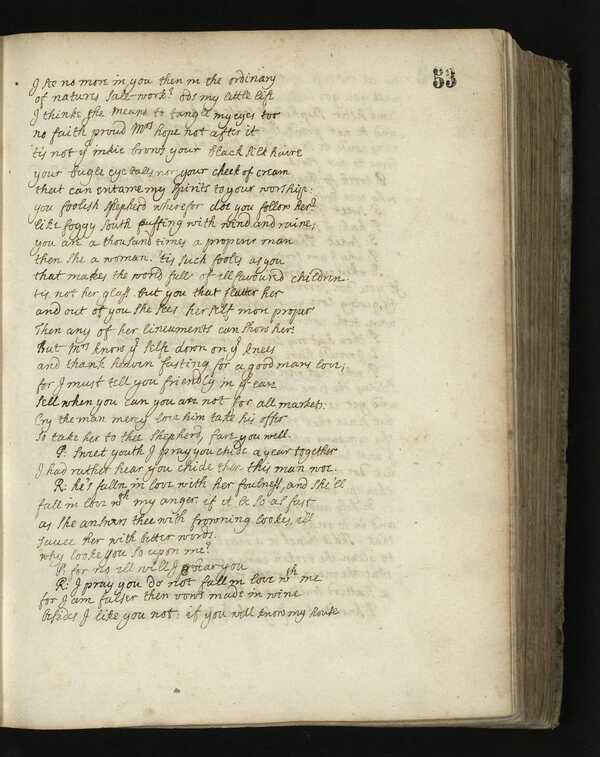 53
I see no more in you then in the ordinary
of natures sale-work? ods my little life
I thinke she means to tangle my eyes too
no faith proud Mrs hope not after it
tis not yr inkie brows your black silk haire
your bugle eye balls nor your cheek of cream
that can entame my spirits to your worship:
you foolish shepherd wherefor doe you follow her?
like foggy south puffing with wind and raine,
you are a thousand times a properer man
then she a woman. tis such fooles as you
that makes the world full of ill favourd children
tis not her glass but you that flatter her
and out of you she sees her self more proper
Then any of her lineaments can show her:
But Mrs know yr self down on yr knees
and thank heaven fasting for a good mans love,
for I must tell you friendly in yr eare
Sell when you can you are not for all market:
Cry the man mercy love him take his offer
So take her to thee Shepherd, fare you well.
P: Sweet youth I pray you chide a year together
I had rather hear you chide then this man woe.
R: he's falln in love with her foulness, and she'll
fall in love wth my anger if it be so as fast
as she answers thee with frowning lookes, ile
sauce her with bitter words.
why looke you so upon me?
P: for no ill will I bear you
R: I pray you do not fall in love wth me
for I am falser then vows made in wine
besides I like you not: if you will know my house